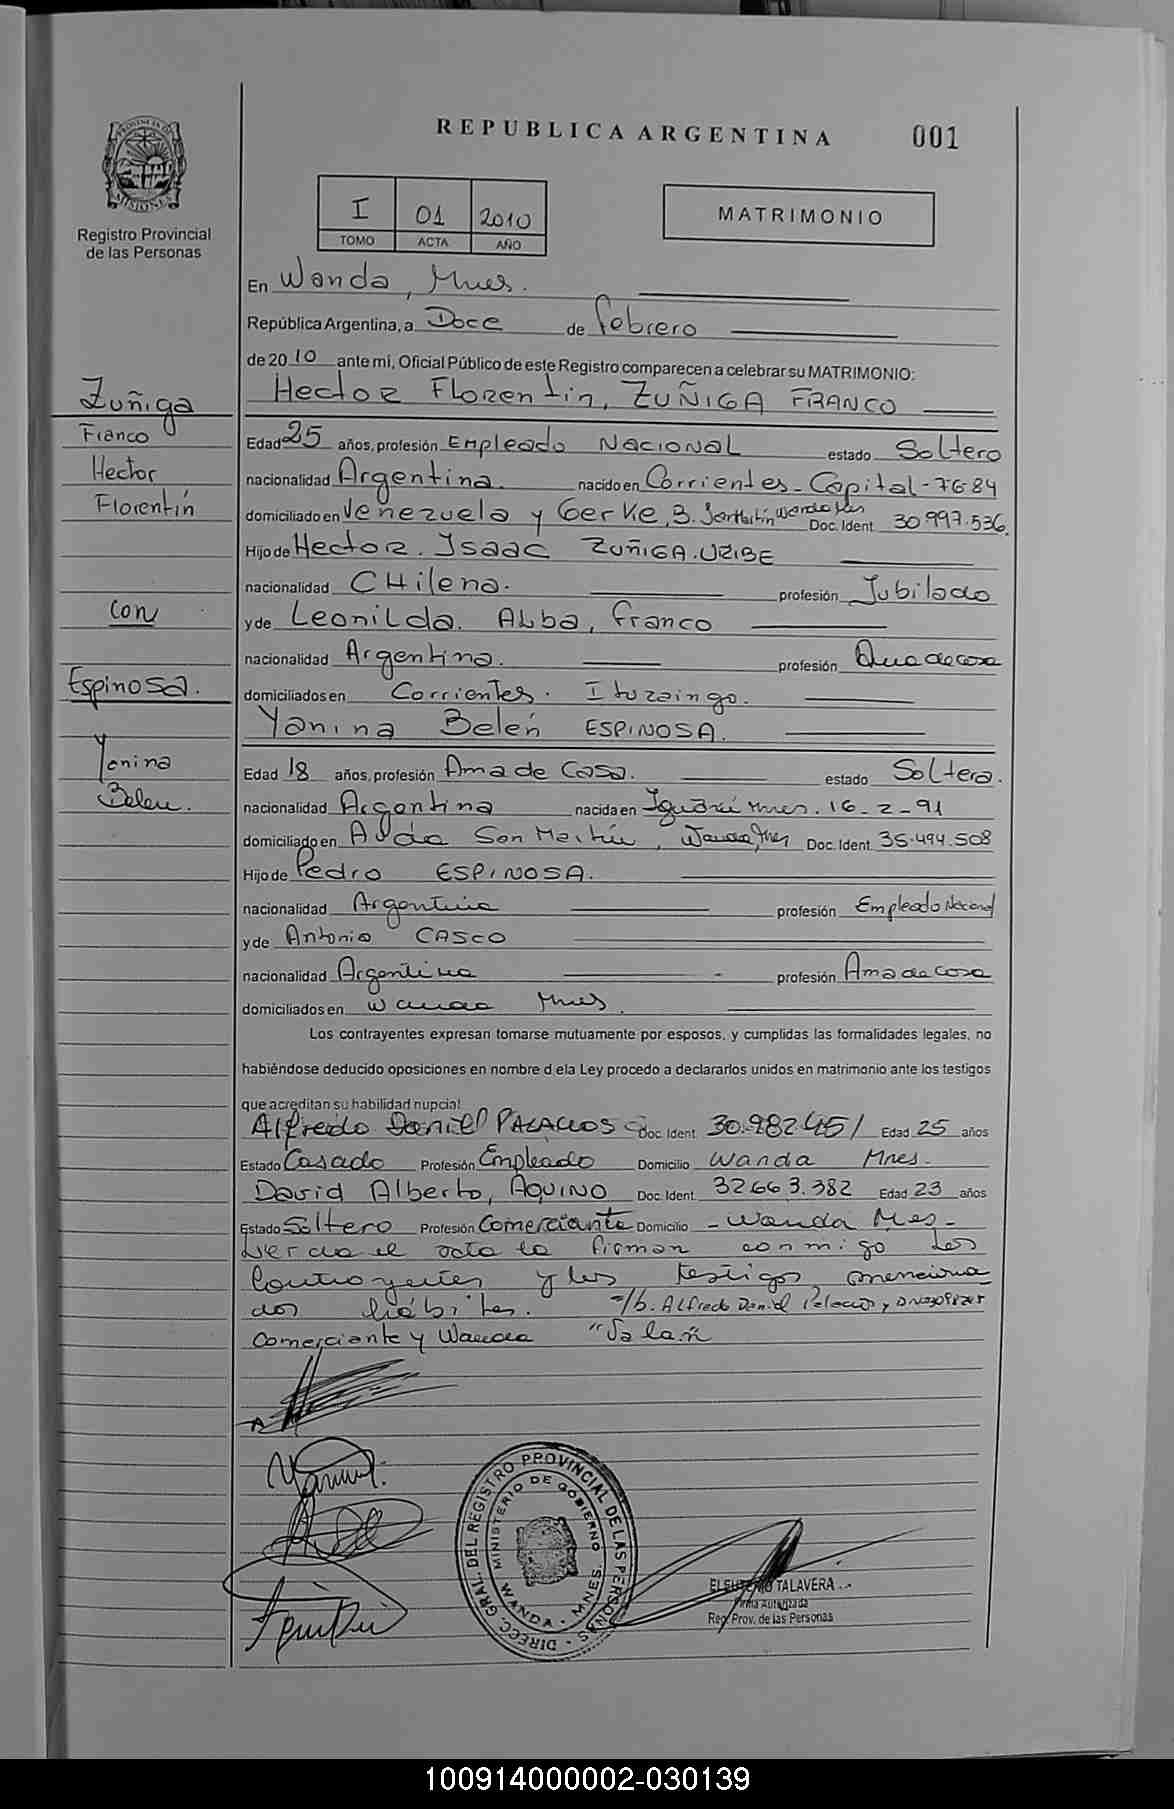 PROVINCIA DE MISIONES
Registro Provincial
de las Personas
REPUBLICA ARGENTINA
001
I 01 2010
TOMO ACTA AÑO
MATRIMONIO
En Wanda, Mnes.
República Argentina, a Doce de febrero
de 2010 ante mi, Oficial Público de este Registro comparecen a celebrar su MATRIMONIO:
Hector Florentin, ZUÑIGA FRANCO
Edad 25 años, profesión Empleado Nacional estado Soltero
nacionalidad Argentina. nacido en Corrientes - Capital - 7-6-84
domiciliado en Venezuela y B. San Martín Wanda Mnes Doc. Ident. 30.997.536.
Hijo de Hector. Isaac ZUÑIGA. URIBE
nacionalidad CHilena. profesión Jubilado
y de Leonilda. Alba, franco
nacionalidad Argentina. profesión Ama de casa
domiciliados en Corrientes. Ituzaingo.
Yanina Belén ESPINOSA.
Edad 18 años, profesión Ama de Casa. estado Soltera.
nacionalidad Argentina nacida en Mnes. 16-2-91
domiciliado en Avda San Martín, Wanda, Mnes Doc. Ident. 35.494.508
Hijo de Pedro ESPINOSA.
nacionalidad Argentina profesión Empleado Nacional
y de Antonia CASCO
nacionalidad Argentina - profesión Ama de casa
domiciliados en Wanda Mnes.
Los contrayentes expresan tomarse mutuamente por esposos, y cumplidas las formalidades legales, no
habiéndose deducido oposiciones en nombre d ela Ley procedo a declararlos unidos en matrimonio ante los testigos
que acreditan su habilidad nupcial
Alfredo Daniel PALACIOS Doc. Ident. 30.982451 Edad 25 años
Estado Casado Profesión Empleado Domicilio Wanda Mnes.
David Alberto, AQUINO Doc. Ident. 32.663.382 Edad 23 años
Estado Soltero Profesión Comerciante Domicilio - Wanda Mes -
el acta la firman conmigo los
Contrayentes y los testigos menciona
dos hábiles. Alfredo Daniel Palacios y
Comerciante y Wanda "Valen
Zuñiga
Franco
Hector
Florentín
con
Espinosa.
Yanina
Belen.
DIRECC. GRAL. DEL REGISTRO PROVINCIAL DE LAS PERSONAS
MINISTERIO DE GOBIERNO
WANDA - MNES.
ELEUTERIO TALAVERA
Firma Autorizada
Reg. Prov. de las Personas
100914000002-030139